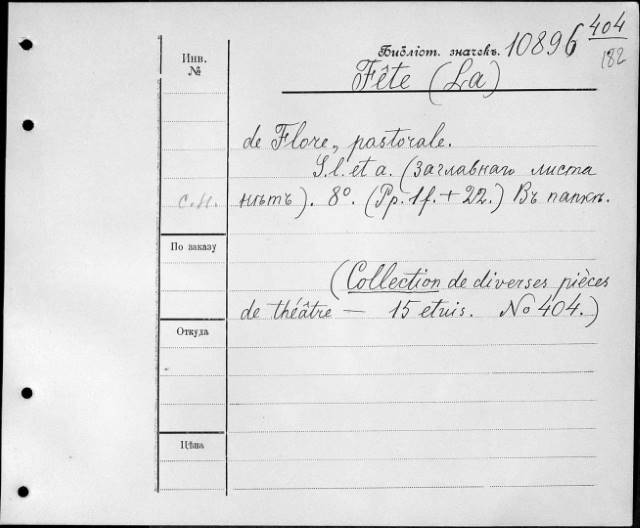 404
Библіот. значекъ. 10896
182
Инв.
№
Fête (La)
de Flore, pastorale.
S. l. et a. (Заглавнаго листа
с.н. нѣтъ). 8°. (Pp. 1f. + 22.) Въ папкѣ.
По заказу
(Collection de diverses pièces
de théâtre — 15 etuis. No 404.)
Откуда
Цѣна